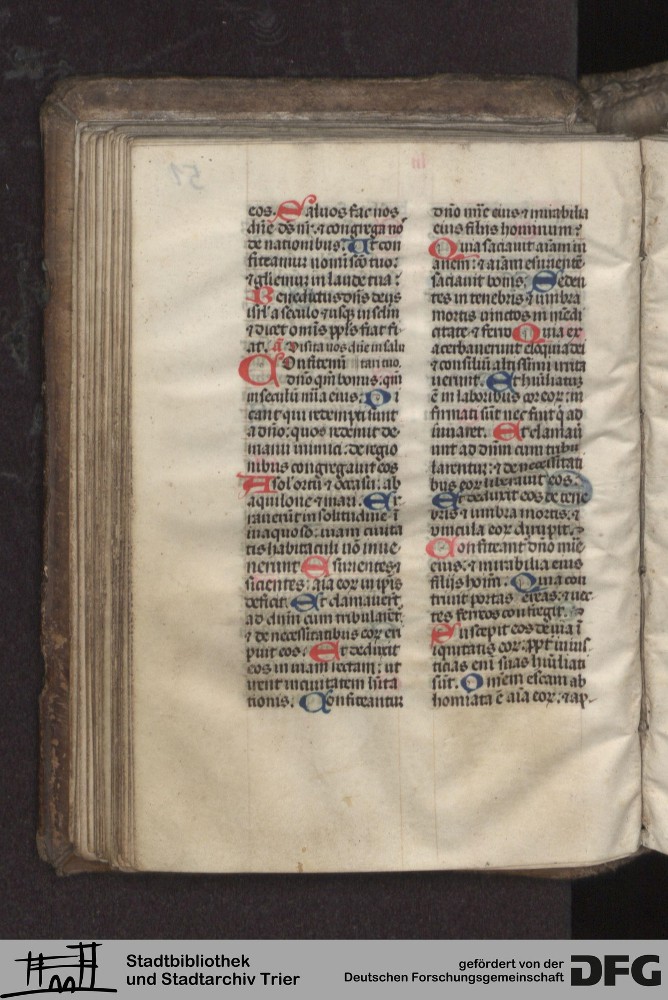 eos. Saluos fac nos
dñe ds nr: ⁊ congrega nos
de nationibus. Ut con
fiteamur nomini sco tuo:
⁊ gliemur in laude tua:
Benedictus dñs deus
isrl a seculo ⁊ usqꝫ in sclm
⁊ dicet omis ppls fiat fi
at. Visita nos dñe in salu
Confitemini tari tuo.
dño qm bonus: qm
in seculum mia eius. Di
cant qui redempti sunt
a dño: quos redemit de
manu inimici: de regio
nibus congregauit eos
A sol ortu ⁊ occasu: ab
aquilone ⁊ mari. Er
rauerunt in solitudine ī
inaquoso: uiam ciuita
tis habitaculi nō inue
nerunt Esurientes ⁊
sicientes: aīa eor in ipis
defecit. Et clamauerūt
ad dnm cum tribularent̄
⁊ de necessitatibus eor eri
puit eos. Et deduxit
eos in uiam rectam: ut
irent in ciuitatem hita
tionis. Confiteantur
dño mie eius ⁊ mirabilia
eius filiis hominum:
Quia saciauit aīam in
anem: ⁊ aīam esurientē
saciauit bonis. Seden
tes in tenebris ⁊ umbra
mortis uinctos in mendi
citate ⁊ ferro Quia ex
acerbauerunt eloquia dei
⁊ consiliū altissimi irrita
uerunt. Et huīliatuꝫ
ē in laboribus cor eor: in
firmati sūt nec fuit q̄ ad
iuuaret. Et clamaū
unt ad dnm cum tribu
larentur: ⁊ de necessitati
bus eor liberauit eos.
Et deduxit eos de tene
bris ⁊ umbra mortis: ⁊
uincula eor dirupit.
Confiteant dño mie
eius: ⁊ mirabilia eius
filijs hoim. Quia con
triuit portas ereas: ⁊ uec
tes ferreos confregit.
Suscepit eos de uia ī
iquitatis eor: ppt inius
ticias eni suas huīliati
sūt. Omem escam ab
homiata ē aīa eor: ⁊ ap
Stadtbibliothek
und Stadtarchiv Trier
gefördert von der
Deutschen Forschungsgemeinschaft
DFG